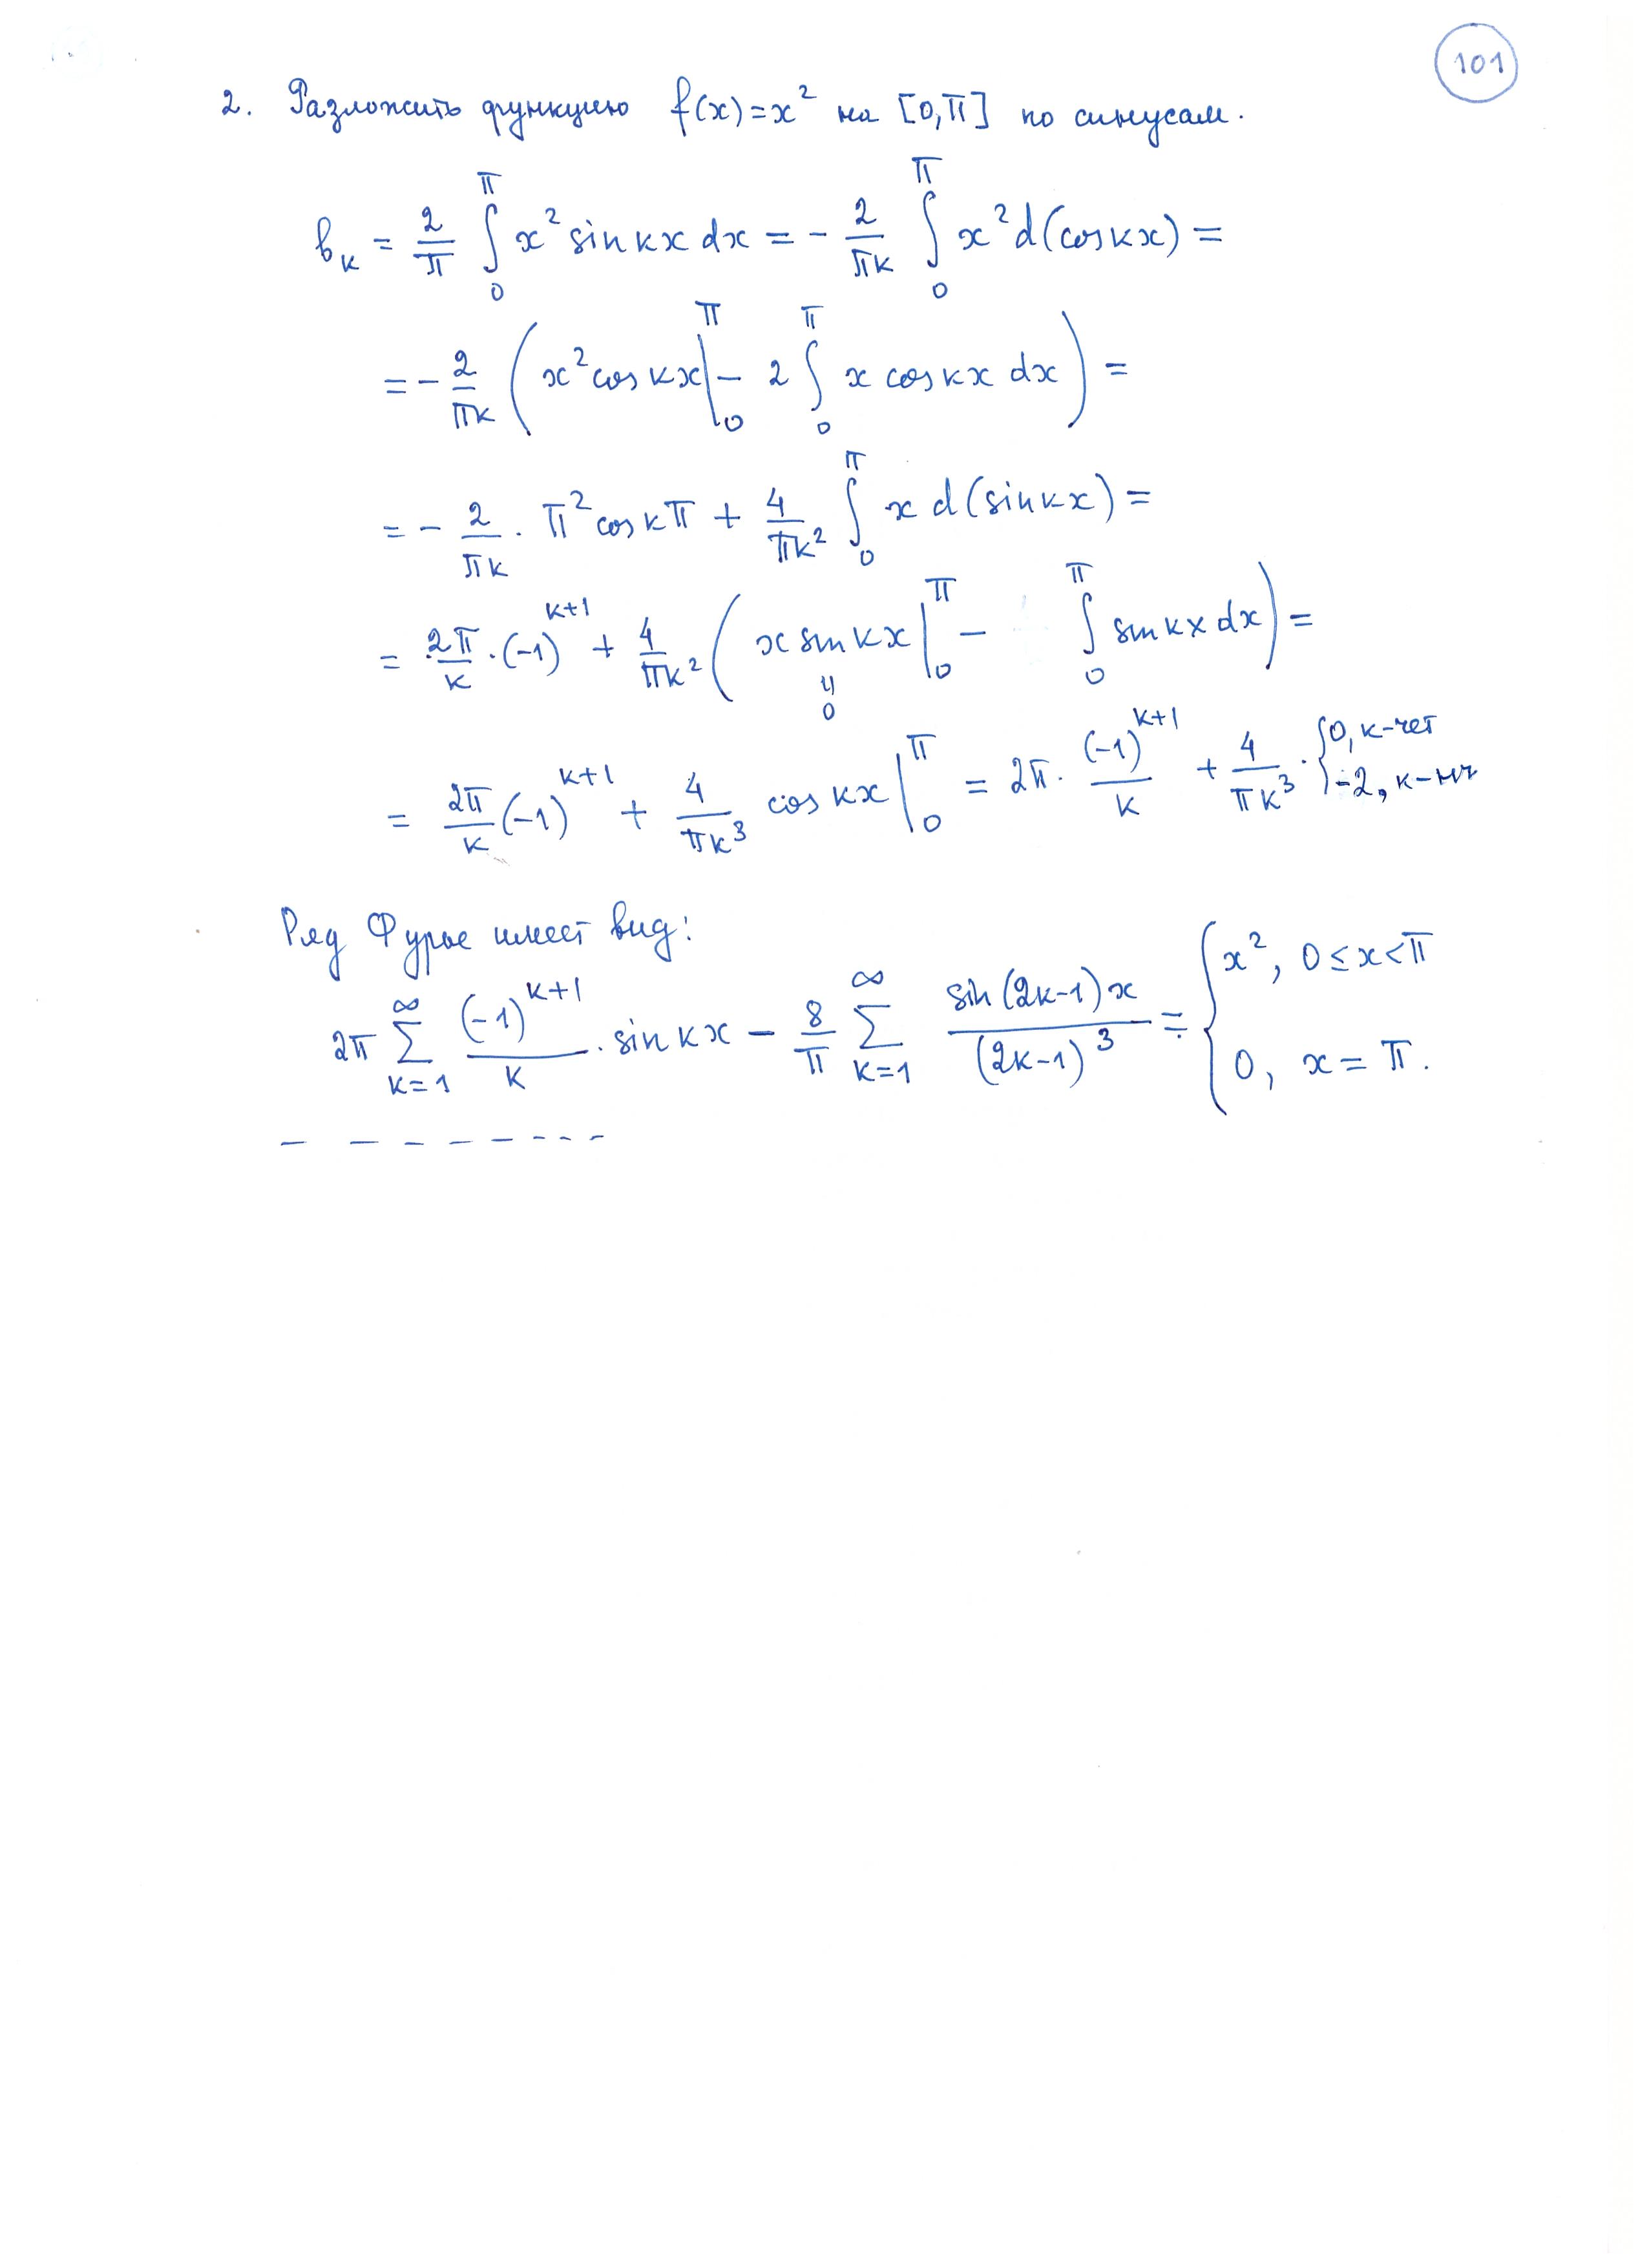 101
2. Разложить функцию f(x)=x² на [0,π] по синусам.
b_k = 2/π ∫_0^π x² sin kx dx = - 2/(πk) ∫_0^π x² d(cos kx) =
= - 2/(πk) ( x² cos kx |_0^π - 2 ∫_0^π x cos kx dx ) =
= - 2/(πk) · π² cos kπ + 4/(πk²) ∫_0^π x d(sin kx) =
= 2π/k · (-1)^{k+1} + 4/(πk²) ( x sin kx |_0^π - ∫_0^π sin kx dx ) =
"
0
= 2π/k (-1)^{k+1} + 4/(πk³) cos kx |_0^π = 2π · (-1)^{k+1}/k + 4/(πk³) · { 0, k-чет
-2, k-нч
Ряд Фурье имеет вид:
2π ∑_{k=1}^∞ (-1)^{k+1}/k · sin kx - 8/π ∑_{k=1}^∞ sin(2k-1)x/(2k-1)³ = { x², 0 ≤ x < π
0, x = π.